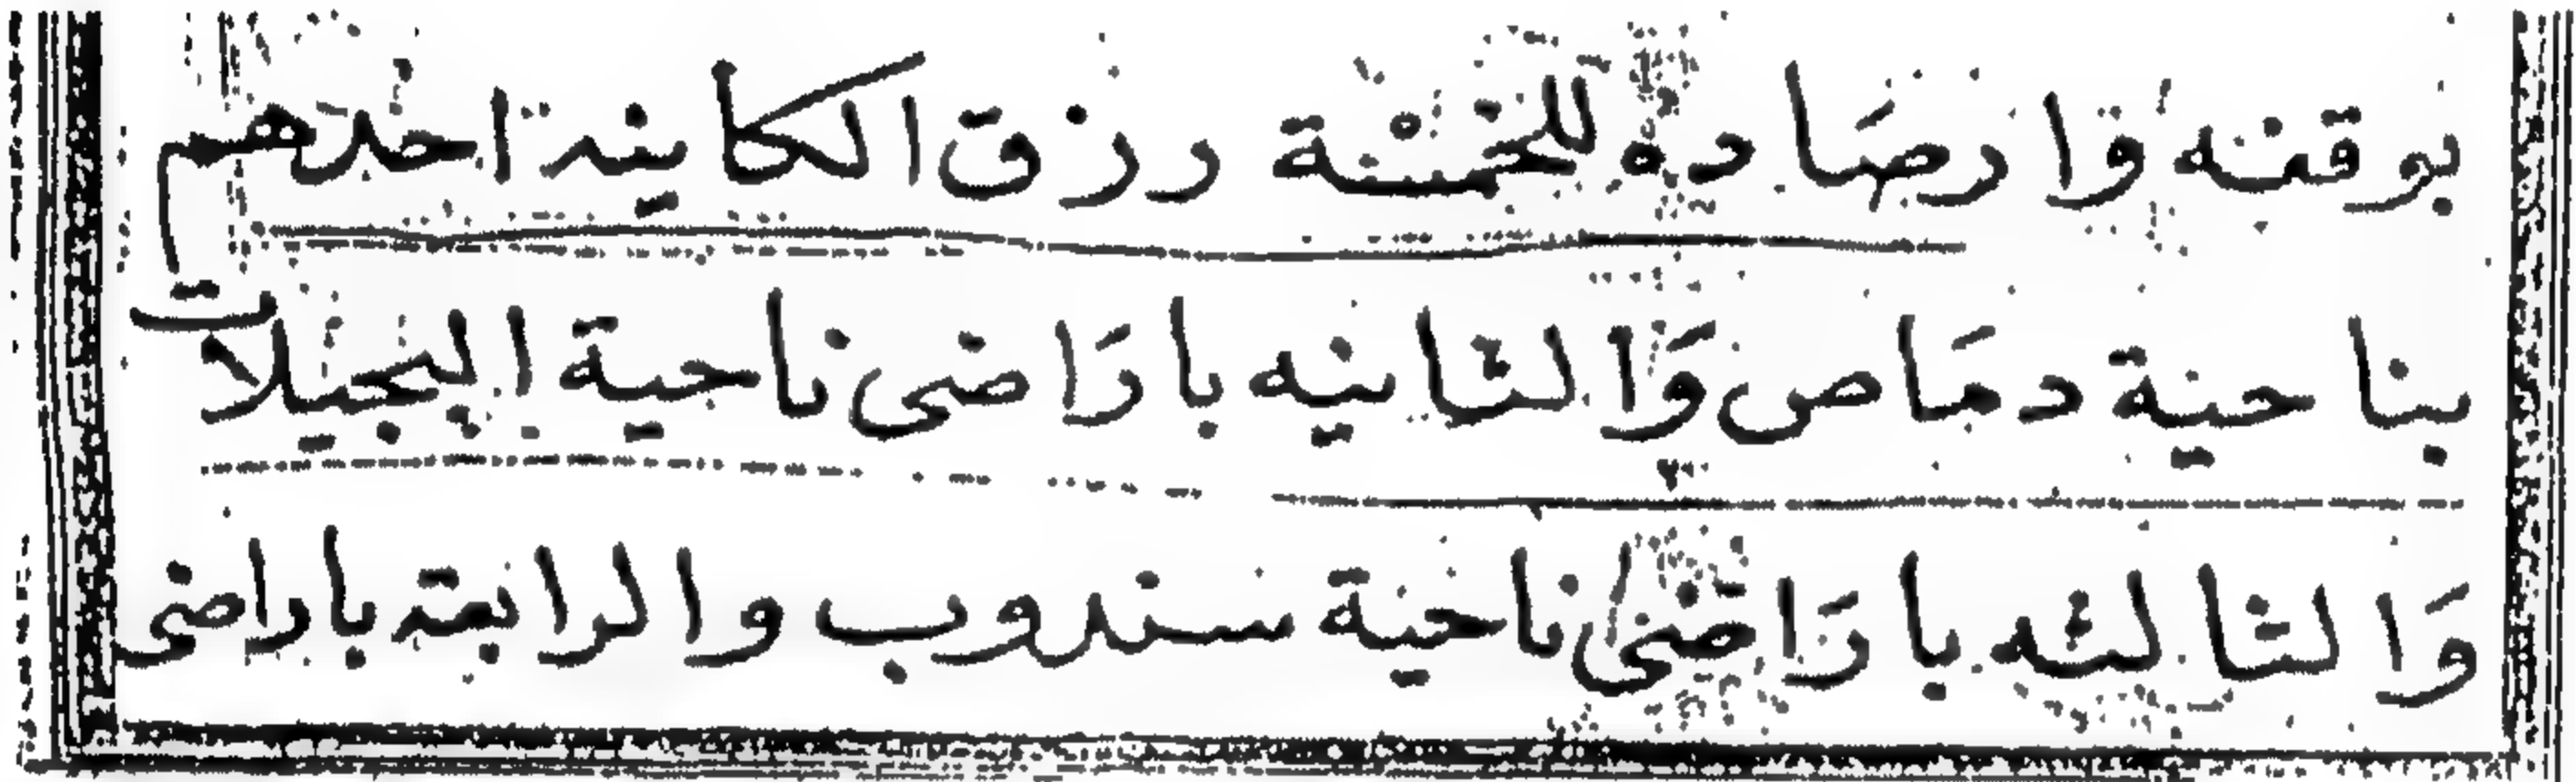 بوقفه وارصاده للخمسة رزق الكاينة احدهم
بناحية دماص والثانيه باراضى ناحية البجيلات
والثالثه باراضى ناحية سندوب والرابعة باراضى